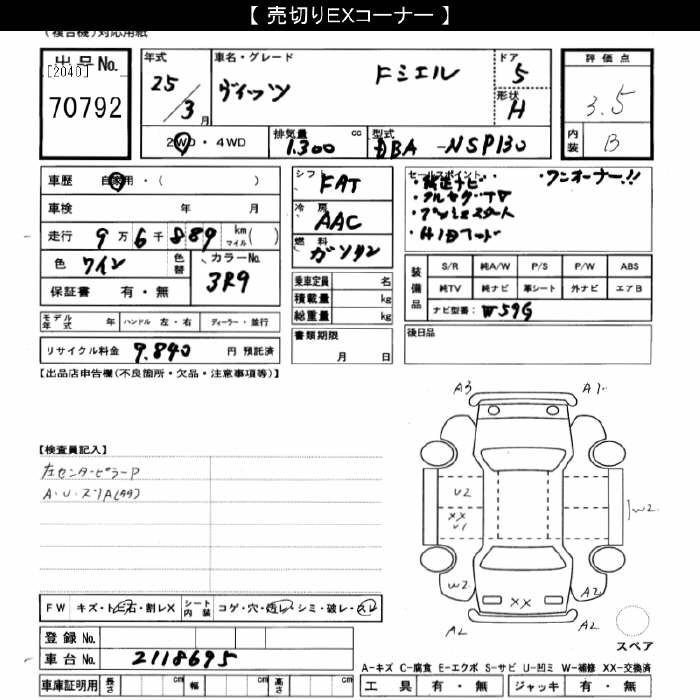 【 売切りEXコーナー 】
(複合機)対応用紙
出品No.
[2040]
70792
年式
25/3月
車名・グレード
ヴィッツ
Fシエル
ドア
5
形状
H
2WD・4WD
排気量
1.300 cc
型式
DBA-NSP130
評価点
3.5
内装
B
車歴 自家用・( )
車検 年 月
走行 9万6千889 km マイル( )
色 ワイン 色替 カラーNo. 3R9
保証書 有・無
シフト FAT
冷房 AAC
燃料 ガソリン
乗車定員 名
積載量 kg
総重量 kg
書類期限
月 日
セールスポイント
・純正ナビ ・ワンオーナー!!
・フルセグTV
・プッシュスタート
・HID
装備品
S/R 純A/W P/S P/W ABS
純TV 純ナビ 革シート 外ナビ エアB
ナビ型番: W59G
後日品
モデル年式 年 ハンドル 左・右 ディーラー・並行
リサイクル料金 9.840 円 預託済
【出品店申告欄(不良箇所・欠品・注意事項等)】
【検査員記入】
左センターピラーP
A・U・スリA
A3 A1
U2
XX
U1
W2
W2
A2
XX
A2 A2
スペア
FW キズ・トビ石・割レX シート内装 コゲ・穴・汚レ・シミ・破レ・スレ
登録No.
車台No. 2118695
車庫証明用 長さ cm 幅 cm 高さ cm
A-キズ C-腐食 E-エクボ S-サビ U-凹ミ W-補修 XX-交換済
工具 有・無 ジャッキ 有・無